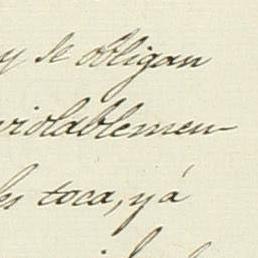 y se obligan
violablemen-
les toca, y á